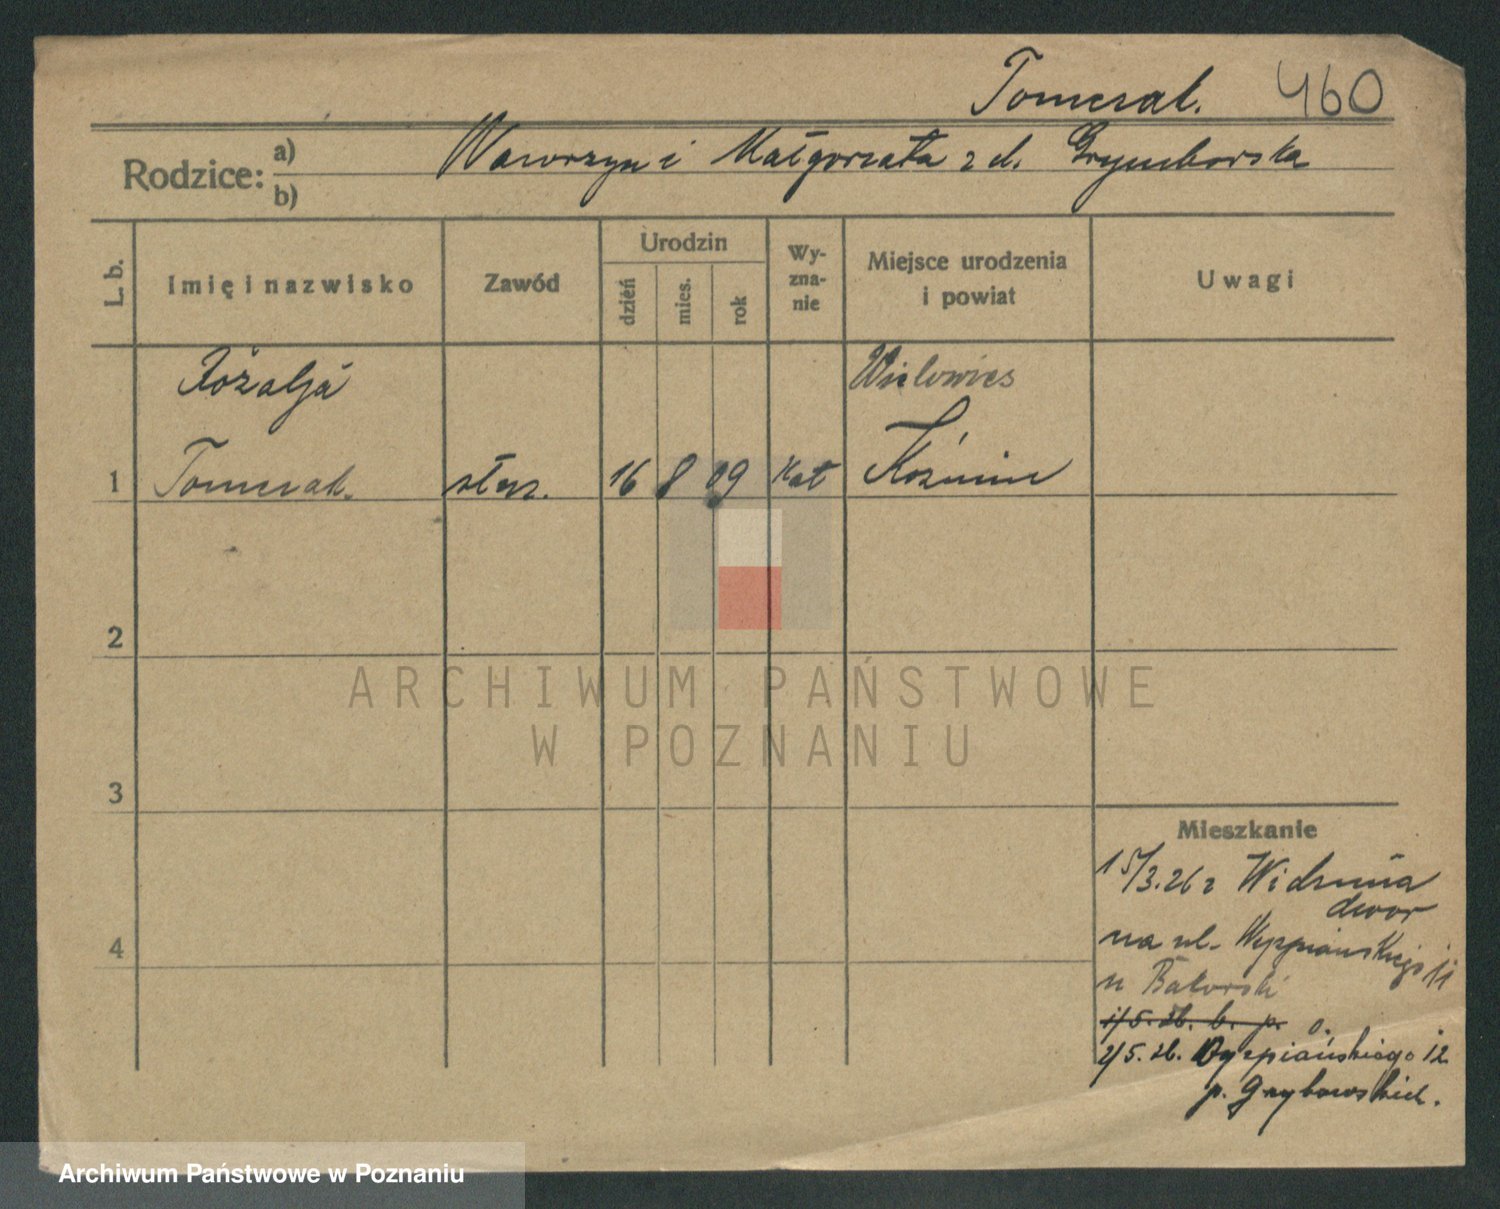 Tomcrak. 460
Rodzice: a) Wawrzyn i Małgorzata z d.
b)
L. b. Imię i nazwisko Zawód Urodzin dzień mies. rok Wy-zna-nie Miejsce urodzenia i powiat Uwagi
Rozalja Wielowieś
1 Tomcrak. służ. 16 8 09 Kat Koźmin
2
ARCHIWUM PAŃSTWOWE
W POZNANIU
3
Mieszkanie
15/3.26 z
dwor
4
na ul. Wyspiańskiego 11
u Batorski
1/5. 26. b. p. o.
2/5. 26. Wyspiańskiego 12
p. Grybowskich.
Archiwum Państwowe w Poznaniu